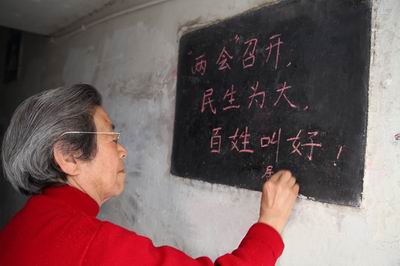 "两会"召开，
民生为大，
百姓叫好！